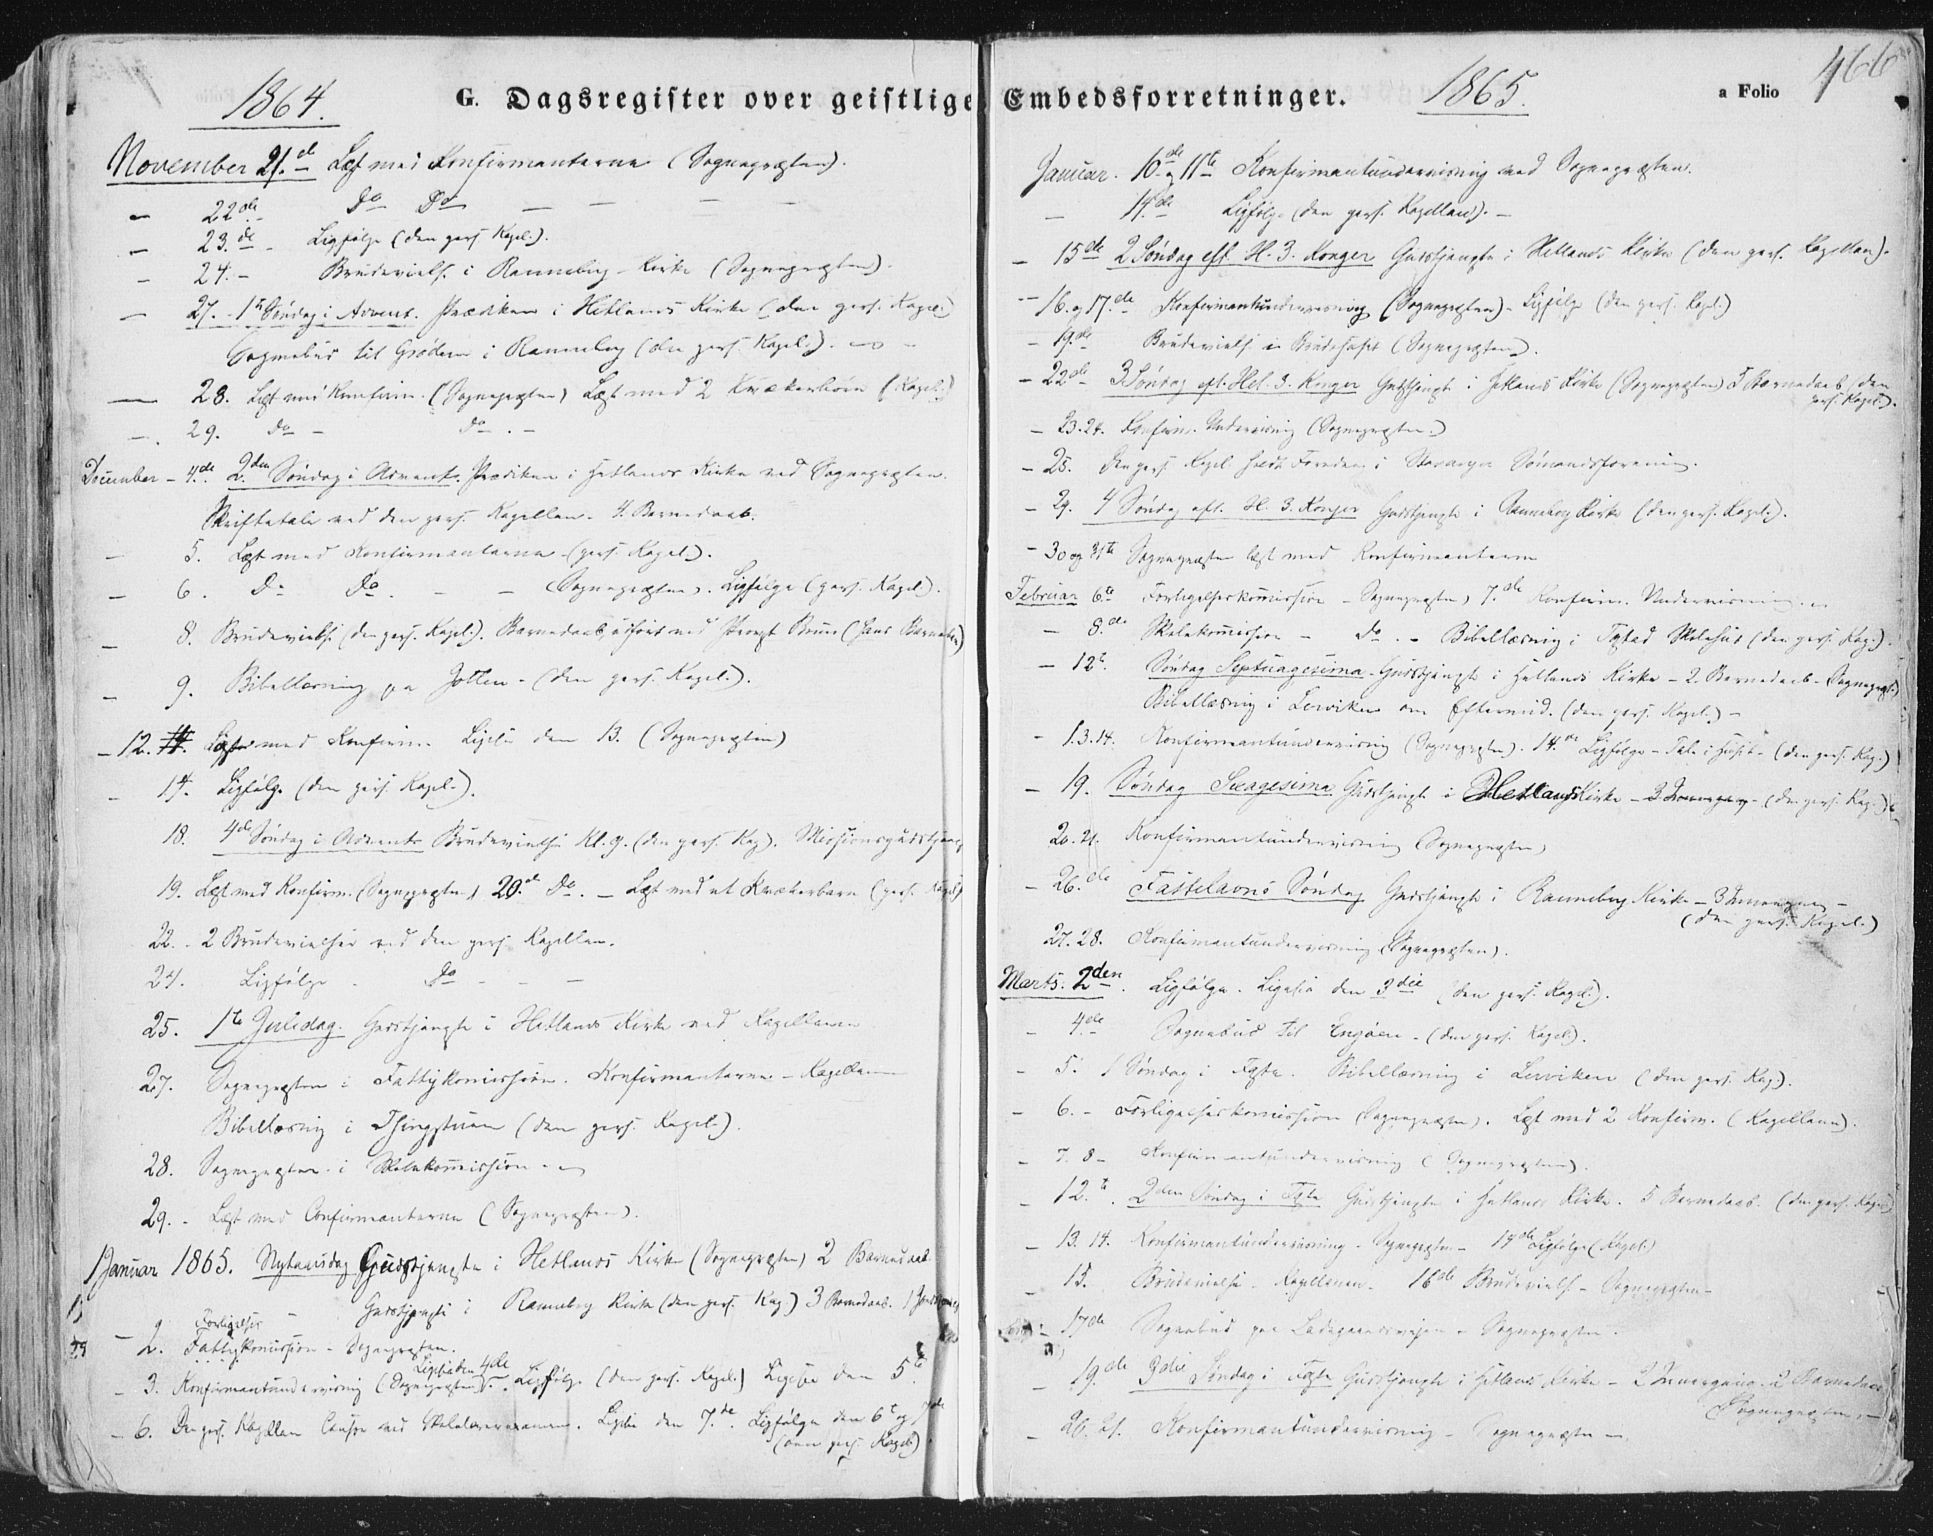 1864.
G. Dagsregister over geistlige
November 21.de Læst med Konfirmanterne (Sognepræsten).
— 22de Do Do — — — —
— 23.de — Ligfølge (den pers. Kapel.).
— 24. — Brudevielse i Ranneberg Kirke (Sognepræsten).
— 27. 1ste Søndag i Advent. Prædiken i Hetlands Kirke (den pers. Kapel.)
Sognebud til Grødem i Ranneberg (den pers. Kapel.).
— 28. Læst med Konfirm. (Sognepræsten) Læst med 2 Kvækerbørn (Kapel.)
— 29. do — do. —
December — 4.de 2den Søndag i Advent. Prædiken i Hetlands Kirke ved Sognepræsten.
Skriftetale ved den pers. Kapellan. 4 Barnedaab.
— 5. Læst med Konfirmanterne (pers. Kapel.).
— 6. Do Do. — — (Sognepræsten). Ligfølge (pers. Kapel.).
— 8. Brudevielse (den pers. Kapel.). Barnedaab udført ved Provst Bruun (hans Barnebarn)
— 9. Bibellæsning paa Jotten — (den pers. Kapel.).
— 12. Læst med Konfirm. Ligelse den 13. (Sognepræsten)
— 14. Ligfølge (den pers. Kapel.).
18. 4de Søndag i Advent Brudevielse Kl. 9. (den pers. Kap.). Missionsgudstjeneste
19. Læst med Konfirm. (Sognepræsten) 20.de Do. — Læst med et Kvækerbarn (pers. Kapel.)
22. 2 Brudevielser ved den pers. Kapellan.
24. Ligfølge — Do — — —
25. 1ste Juledag. Gudstjeneste i Hetlands Kirke ved Kapellanen
27. Sognepræsten i Fattigkommission. Konfirmanterne — Kapellanen
Bibellæsning i Thingstuen (den pers. Kapel.).
28. Sognepræsten i Skolekommission.
29. — Læst med Confirmanterne (Sognepræsten).
1 Januar 1865. Nytaarsdag Gudstjeneste i Hetlands Kirke (Sognepræsten) 2 Barnedaab
— Gudstjeneste i Ranneberg Kirke (den pers. Kap.) 3 Barnedaab.
— 2. Forligelses Fattigkommission — Sognepræsten.
— 3. Konfirmantundervisning (Sognepræsten). Ligelse den 4de Ligfølge (den pers. Kapel.) Ligelse den 5.te
— 6. Den pers. Kapellan Censor ved Skolelærerexamen. Ligelse den 7.de. Ligfølge den 6te og 7de
(den pers. Kapel.)
Embedsforretninger. 1865. a Folio 466
Januar. 10de og 11te Konfirmantundervisning ved Sognepræsten.
— 14.de Ligfølge (den pers. Kapellan). —
— 15de 2 Søndag eft. H. 3. Konger Gudstjeneste i Hetlands Kirke (den pers. Kapellan).
— 16. og 17.de Konfirmantundervisning (Sognepræsten) — Ligfølge (den pers. Kapel.)
— 19de Brudevielse i Brudehuset (Sognepræsten).
— 22de 3 Søndag eft. Hel. 3. Konger Gudstjeneste i Hetlands Kirke (Sognepræsten) 5 Barnedaab (den
pers. Kapel.).
— 23. 24. Konfirm. Undervisning (Sognepræsten)
— 25. Den pers. Kapel. holdt Foredrag i Stavanger Sømandsforening.
— 29. 4 Søndag eft. H. 3. Konger Gudstjeneste i Ranneberg Kirke (den pers. Kapel.).
— 30 og 31te Sognepræsten læst med Konfirmanterne
Februar 6te Forligelseskommission — Sognepræsten, 7.de Konfirm. Undervisning.
— 8.de Skolekommission — do. — Bibellæsning i Tasta Skolehus (den pers. Kap.).
— 12te. Søndag Septuagesima. Gudstjeneste i Hetlands Kirke — 2. Barnedaab — Sognepræst.
Bibellæsning i Lerviken om Eftermid. (den pers. Kapel.) —
— 13. 14. Konfirmantundervisning (Sognepræsten). 14.de Ligfølge — Tale i Huset — (den pers. Kap.)
— 19. Søndag Sexagesima. Gudstjeneste i Hetlands Kirke — 3 — (den pers. Kap.)
20. 21. Konfirmantundervisning (Sognepræsten)
— 26.de Fastelavns Søndag Gudstjeneste i Ranneberg Kirke — 3 —
(den pers. Kapel.)
27. 28. Konfirmantundervisning (Sognepræsten).
Marts. 2den. Ligfølge. Ligelse den 3die (den pers. Kapel.).
— 4.de Sognebud til Engøen — (den pers. Kapel.).
— 5. 1 Søndag i Faste. Bibellæsning i Lerviken (den pers. Kap.).
— 6. — Forligelseskommission (Sognepræsten). Læst med 2 Konfirm. (Kapellanen).
— 7. 8 — Konfirmantundervisning (Sognepræsten).
— 12.te. 2den Søndag i Faste Gudstjeneste i Hetlands Kirke. 5 Barnedaab. (den pers. Kapel.)
— 13. 14. Konfirmantundervisning — Sognepræsten — 14de Ligfølge (Kapel.)
— 15. Brudevielse — Kapellanen. 16de Brudevielse — Sognepræsten —
— 17de Sognebud paa Ladegaardsveien — Sognepræsten.
— 19.de 3die Søndag i Faste Gudstjeneste i Hetlands Kirke — 2 Barnedaab
Sognepræsten. —
— 20. 21. Konfirmantundervisning — Sognepræsten —